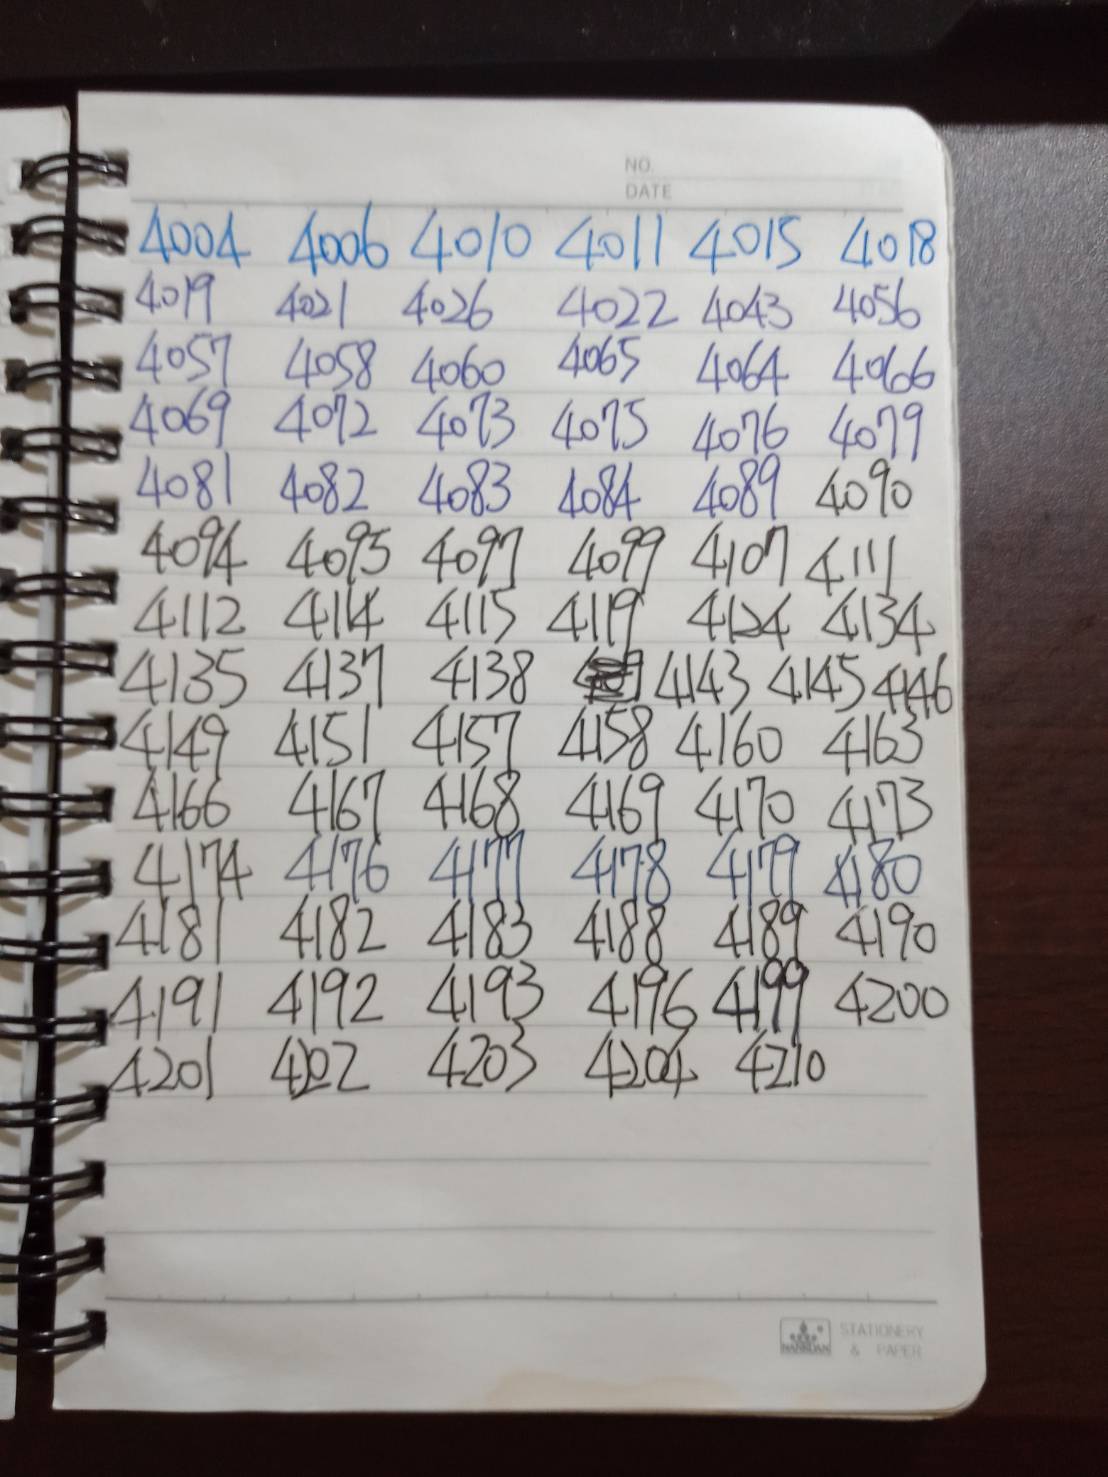 NO.
DATE
4004 4006 4010 4011 4015 4018
4019 4021 4026 4022 4043 4056
4057 4058 4060 4065 4064 4066
4069 4072 4073 4075 4076 4079
4081 4082 4083 4084 4089 4090
4094 4095 4097 4099 4107 4111
4112 4114 4115 4119 4124 4134
4135 4137 4138 4143 4145 4146
4149 4151 4157 4158 4160 4163
4166 4167 4168 4169 4170 4173
4174 4176 4177 4178 4179 4180
4181 4182 4183 4188 4189 4190
4191 4192 4193 4196 4199 4200
4201 4202 4203 4204 4210
STATIONERY
& PAPER